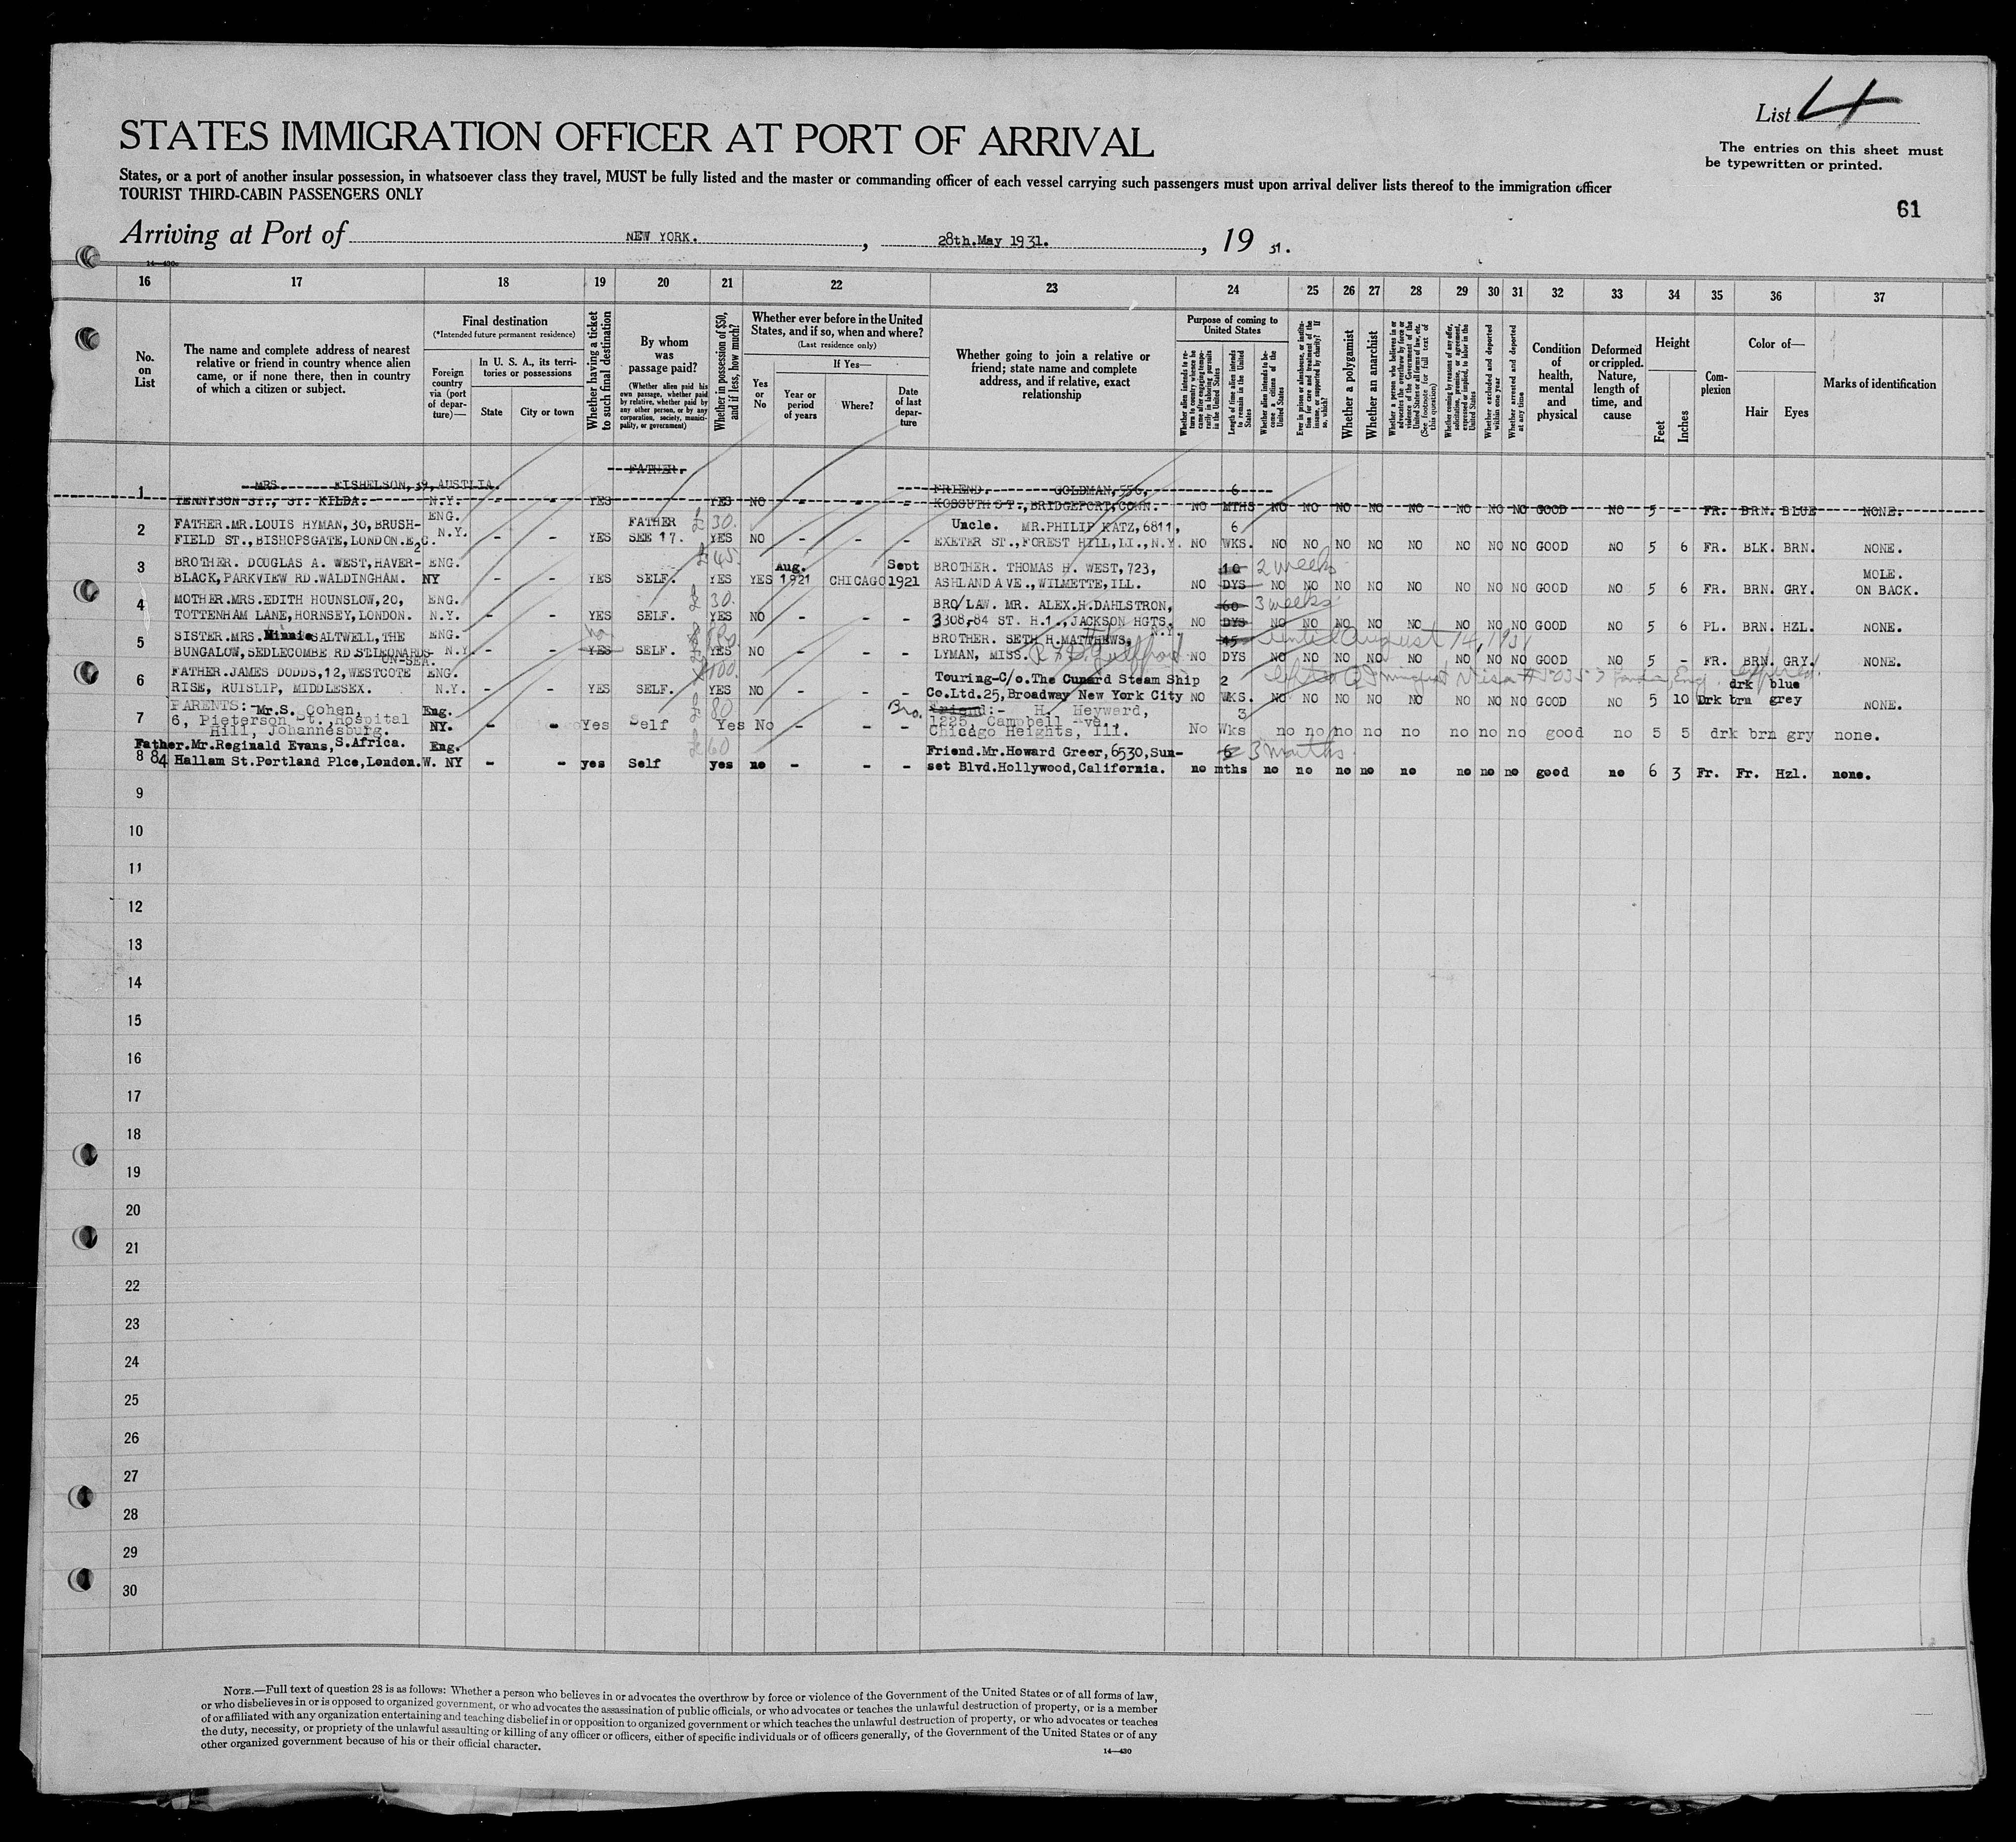 List 4
STATES IMMIGRATION OFFICER AT PORT OF ARRIVAL
The entries on this sheet must
be typewritten or printed.
States, or a port of another insular possession, in whatsoever class they travel, MUST be fully listed and the master or commanding officer of each vessel carrying such passengers must upon arrival deliver lists thereof to the immigration officer
TOURIST THIRD-CABIN PASSENGERS ONLY
61
Arriving at Port of NEW YORK. , 28th.May 1931. , 19 31.
14—430
16 17 18 19 20 21 22 23 24 25 26 27 28 29 30 31 32 33 34 35 36 37
No. on List
The name and complete address of nearest relative or friend in country whence alien came, or if none there, then in country of which a citizen or subject.
Final destination
(*Intended future permanent residence)
Foreign country via (port of departure)—
In U. S. A., its territories or possessions
State
City or town
Whether having a ticket to such final destination
By whom was passage paid?
(Whether alien paid his own passage, whether paid by relative, whether paid by any other person, or by any corporation, society, municipality, or government)
Whether in possession of $50, and if less, how much?
Whether ever before in the United States, and if so, when and where?
(Last residence only)
Yes or No
If Yes—
Year or period of years
Where?
Date of last departure
Whether going to join a relative or friend; state name and complete address, and if relative, exact relationship
Purpose of coming to United States
Whether alien intends to return to country whence he came after engaging temporarily in laboring pursuits in the United States
Length of time alien intends to remain in the United States
Whether alien intends to become a citizen of the United States
Ever in prison or almshouse, or institution for care and treatment of the insane, or supported by charity? If so, which?
Whether a polygamist
Whether an anarchist
Whether a person who believes in or advocates the overthrow by force or violence of the Government of the United States or all forms of law, etc. (See footnote for full text of this question)
Whether coming by reasons of any offer, solicitation, promise, or agreement, expressed or implied, to labor in the United States
Whether excluded and deported within one year
Whether arrested and deported at any time
Condition of health, mental and physical
Deformed or crippled. Nature, length of time, and cause
Height
Feet
Inches
Complexion
Color of—
Hair
Eyes
Marks of identification
FATHER.
MRS. FISHELSON, 39, AUSTLIA. FRIEND. GOLDMAN, 556, 6
1 TENNYSON ST., ST. KILDA. N.Y. - - YES YES NO - - - KOSSUTH ST., BRIDGEPORT, CONN. NO MTHS NO NO NO NO NO NO NO NO GOOD NO 5 - FR. BRN. BLUE NONE.
2 FATHER.MR.LOUIS HYMAN,30,BRUSH- ENG. FATHER £30. Uncle. MR.PHILIP KATZ,6811, 6
FIELD ST.,BISHOPSGATE,LONDON.E.2C. N.Y. - - YES SEE 17. YES NO - - - EXETER ST.,FOREST HILL,LI.,N.Y. NO WKS. NO NO NO NO NO NO NO NO GOOD NO 5 6 FR. BLK. BRN. NONE.
3 BROTHER. DOUGLAS A. WEST,HAVER- ENG. £45. Aug. Sept BROTHER. THOMAS H. WEST,723, 10 2 weeks MOLE.
BLACK,PARKVIEW RD.WALDINGHAM. NY - - YES SELF. YES YES 1921 CHICAGO 1921 ASHLAND AVE.,WILMETTE,ILL. NO DYS NO NO NO NO NO NO NO NO GOOD NO 5 6 FR. BRN. GRY. ON BACK.
4 MOTHER.MRS.EDITH HOUNSLOW,20, ENG. £30. BRO/LAW. MR. ALEX.H.DAHLSTRON, 60 3 weeks
TOTTENHAM LANE,HORNSEY,LONDON. N.Y. - - YES SELF. YES NO - - 3308,84 ST. H.1.,JACKSON HGTS. N.Y. NO DYS NO NO NO NO NO NO NO NO GOOD NO 5 6 PL. BRN. HZL. NONE.
5 SISTER.MRS.Minnie SALTWELL,THE ENG. No BROTHER. SETH H.MATTHEWS. 45 until August 14, 1931
BUNGALOW,SEDLECOMBE RD.ST.LEONARDS- N.Y. - - YES SELF. YES NO - - - LYMAN, MISS. NO DYS NO NO NO NO NO NO NO NO GOOD NO 5 - FR. BRN. GRY. NONE.
ON-SEA.
6 FATHER.JAMES DODDS,12,WESTCOTE ENG. £100. Touring-C/o.The Cunard Steam Ship 2 drk blue
RISE, RUISLIP, MIDDLESEX. N.Y. - - YES SELF. YES NO - - - Co.Ltd.25,Broadway New York City NO WKS. NO NO NO NO NO NO NO NO GOOD NO 5 10 Drk brn grey NONE.
7 PARENTS:-Mr.S. Cohen, Eng. £80 Bro. Friend:- H. Heyward, 3
6, Pieterson St.,Hospital NY. - - Yes Self Yes No - - - 1225, Campbell Ave.,
Hill, Johannesburg. Chicago Heights, Ill. No Wks no no no no no no no no good no 5 5 drk brn gry none.
S.Africa.
8 Father.Mr.Reginald Evans, Eng. £60 Friend.Mr.Howard Greer,6530,Sun- 6 3 months
84 Hallam St.Portland Plce,London.W. NY - - yes Self yes no - - - set Blvd.Hollywood,California. no mths no no no no no no no no good no 6 3 Fr. Fr. Hzl. none.
9
10
11
12
13
14
15
16
17
18
19
20
21
22
23
24
25
26
27
28
29
30
NOTE.—Full text of question 28 is as follows: Whether a person who believes in or advocates the overthrow by force or violence of the Government of the United States or of all forms of law,
or who disbelieves in or is opposed to organized government, or who advocates the assassination of public officials, or who advocates or teaches the unlawful destruction of property, or is a member
of or affiliated with any organization entertaining and teaching disbelief in or opposition to organized government or which teaches the unlawful destruction of property, or who advocates or teaches
the duty, necessity, or propriety of the unlawful assaulting or killing of any officer or officers, either of specific individuals or of officers generally, of the Government of the United States or of any
other organized government because of his or their official character.
14—430